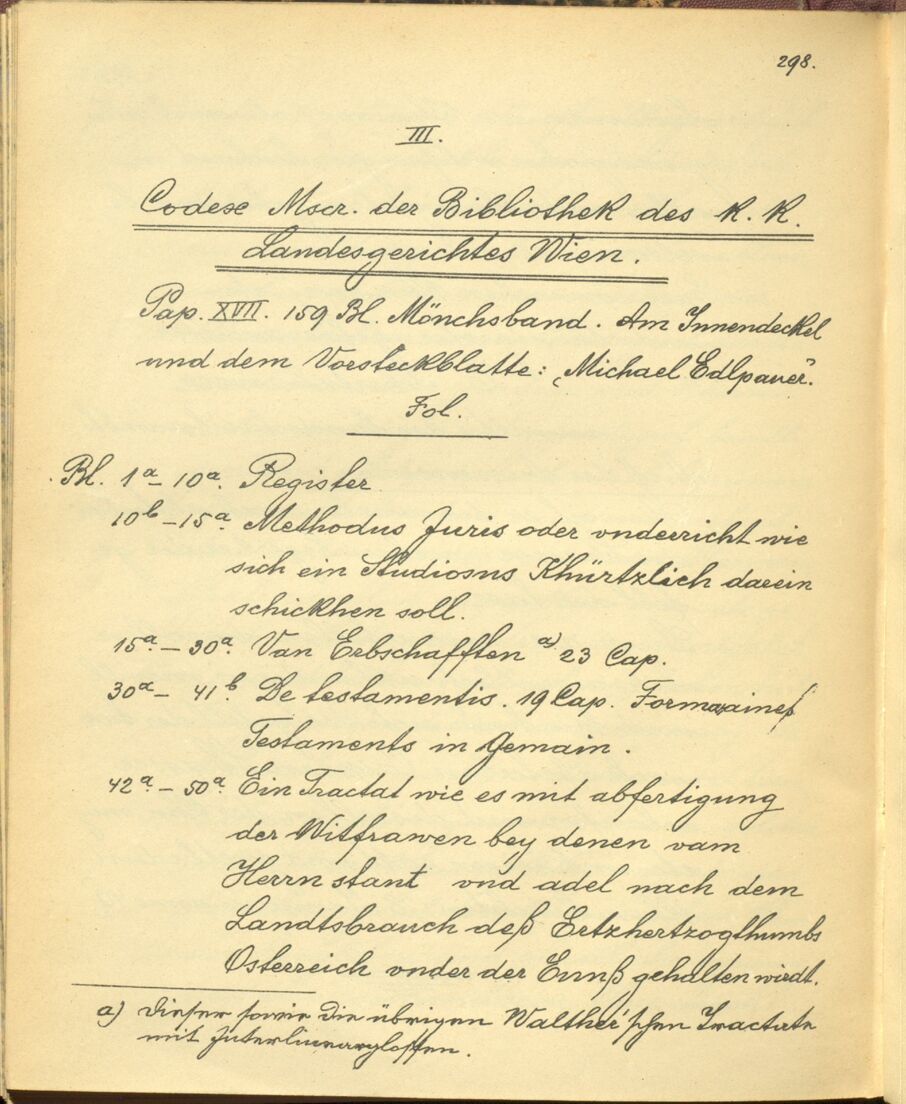 298.
III.
Codex Mscr. der Bibliothek des K. K.
Landesgerichtes Wien.
Pap. XVII. 159 Bl. Mönchsband. Am Innendeckel
und dem Vorsteckblatte: „Michael Edlpauer".
Fol.
Bl. 1a – 10a. Register
10b – 15a. Methodus Juris oder vnderricht wie
sich ein Studiosus Khürtzlich darein
schickhen soll.
15a. – 30a. Van Erbschafften a) 23 Cap.
30a – 41b. De testamentis. 19 Cap. Forma aines
Testaments in Gemain.
42a. – 50a. Ein Tractat wie es mit abfertigung
der Witfrawen bey denen vam
Herrn stant vnd adel nach dem
Landtsbrauch deß Ertzhertzogthumbs
Österreich vnder der Ennß gehalten wirdt.
a) Dieser sowie die übrigen Walther'schen Tractate
mit Interlinearglossen.